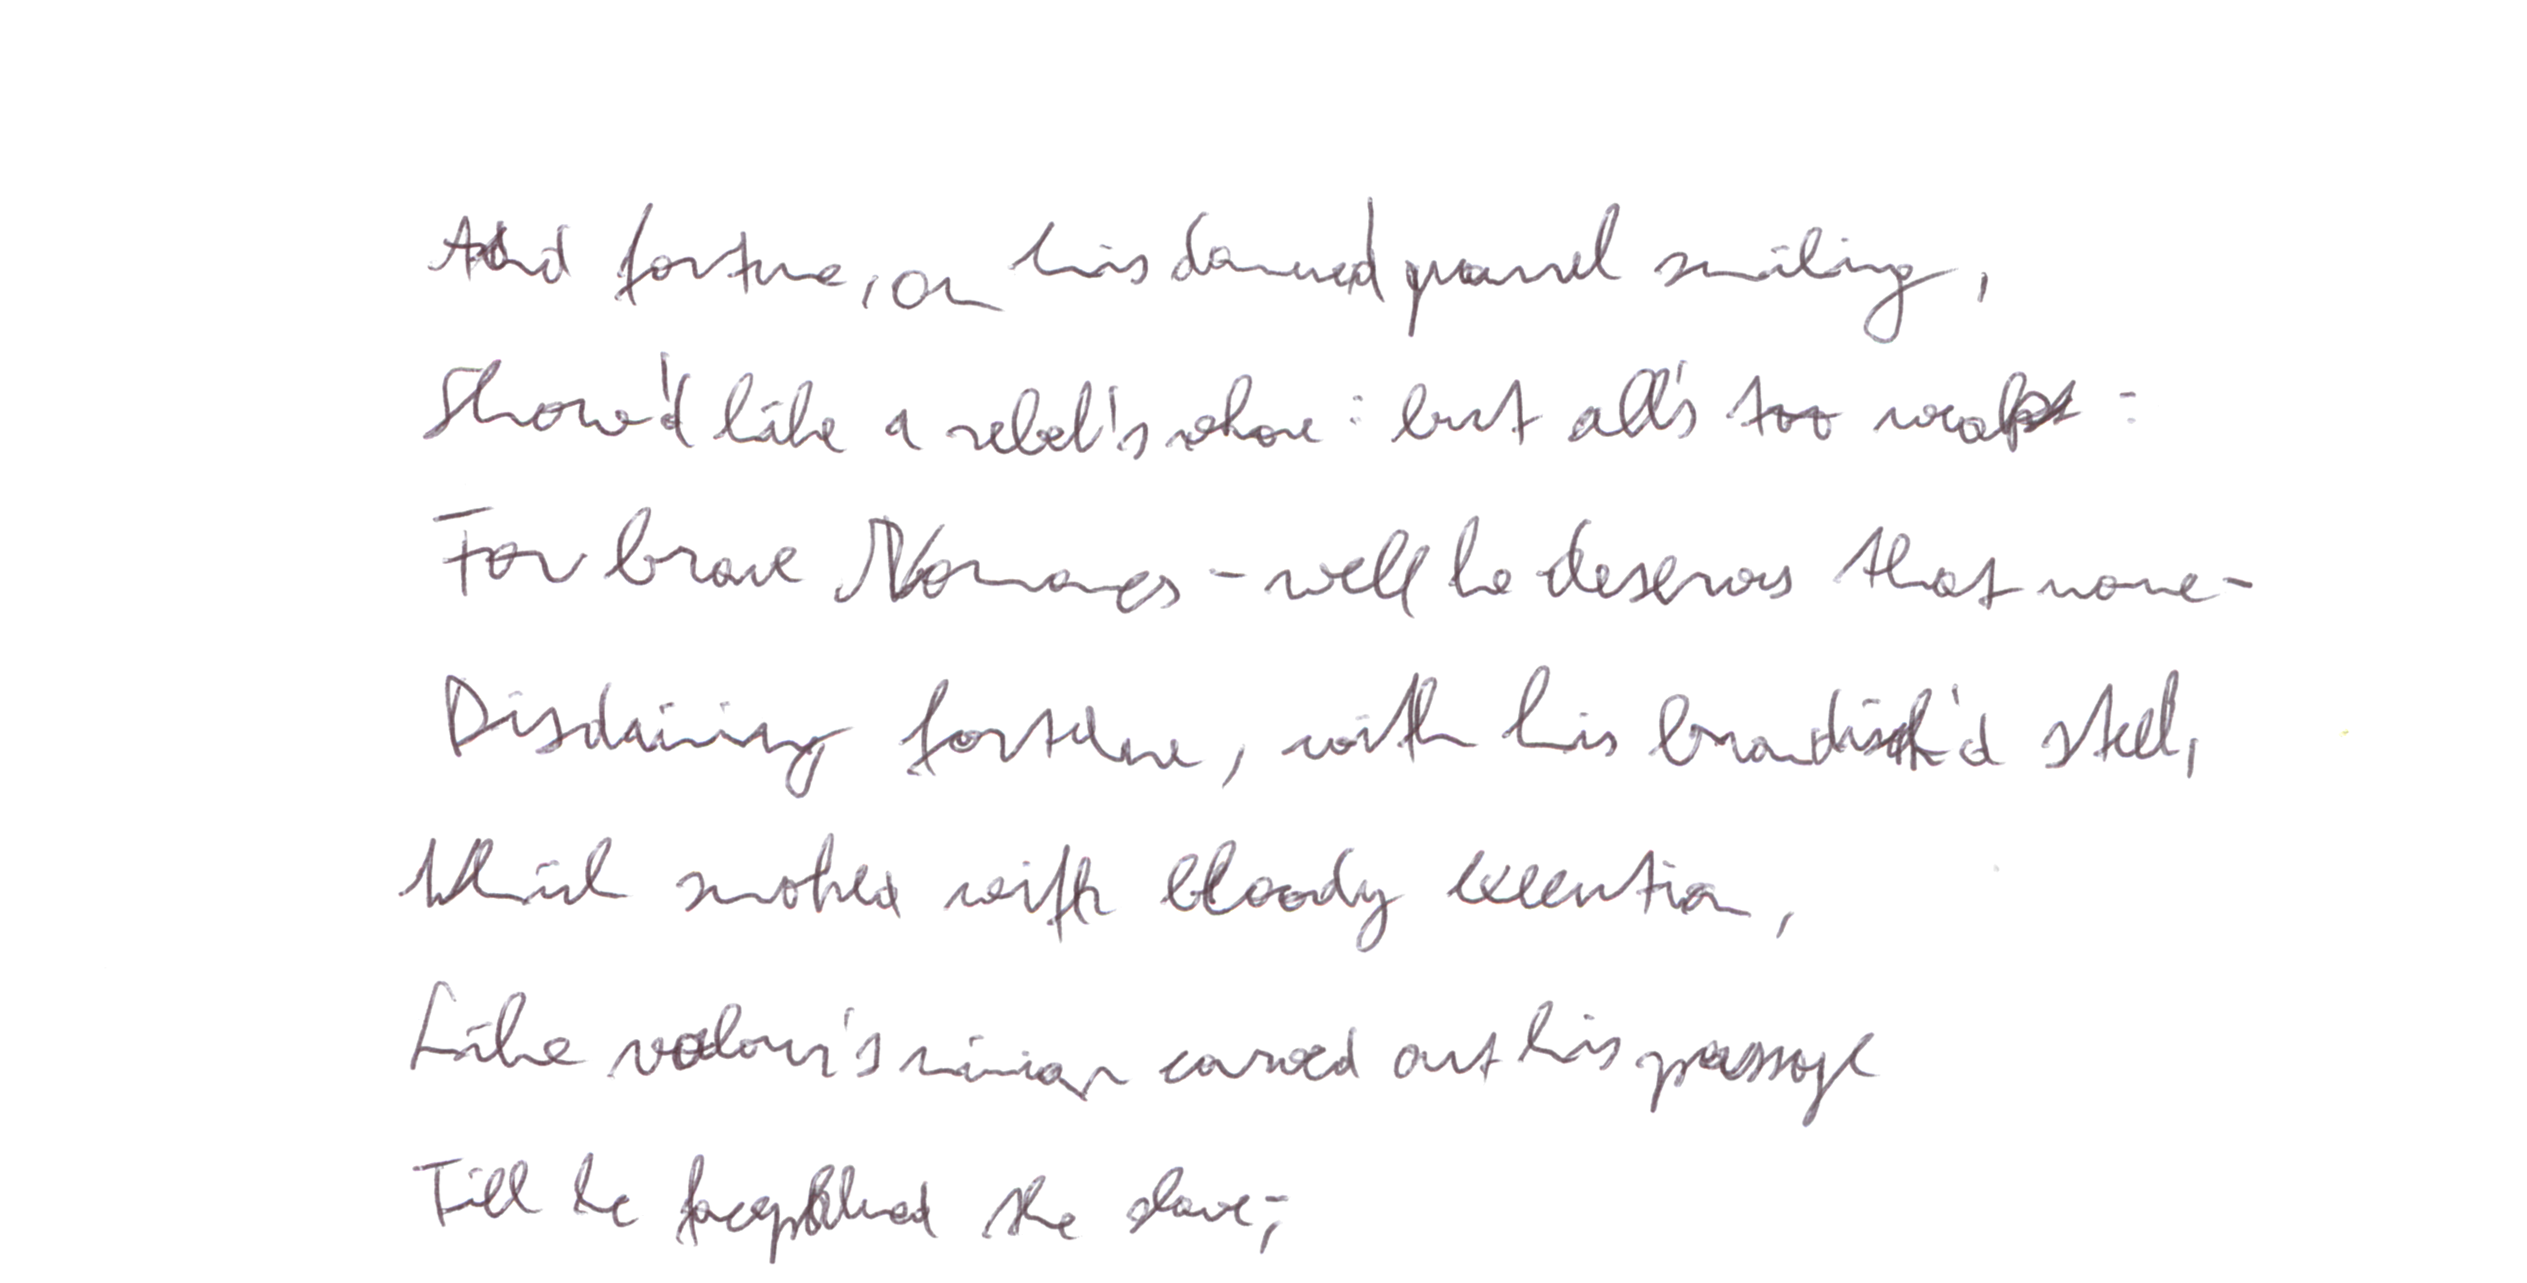 And fortune, on his damned quarrel smiling,
Show'd like a rebel's whore: but all's too weak:
For brave - well he deserves that name -
Disdaining fortune, with his brandish'd steel,
Which smoked with bloody execution,
Like valour's minion carved out his passage
Till he the slave;